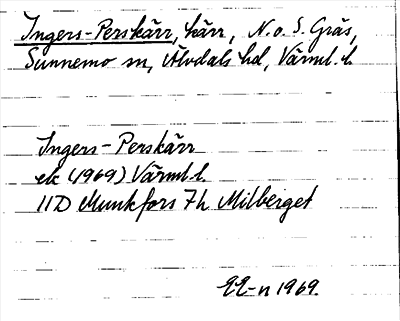 Ingers-Perskärr, kärr, N. o. S. Gräs,
Sunnemo sn, Älvdals hd, Värml. l.
Ingers-Perskärr
ek (1969) Värml. l.
11D Munkfors 7h Milberget
EE-n 1969.